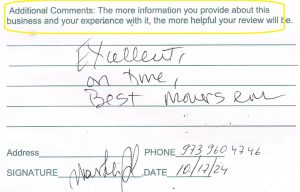 Additional Comments: The more information you provide about this
business and your experience with it, the more helpful your review will be.
Excellent,
on time,
Best movers ever
Address PHONE 973 960 4746
SIGNATURE DATE 10/17/24